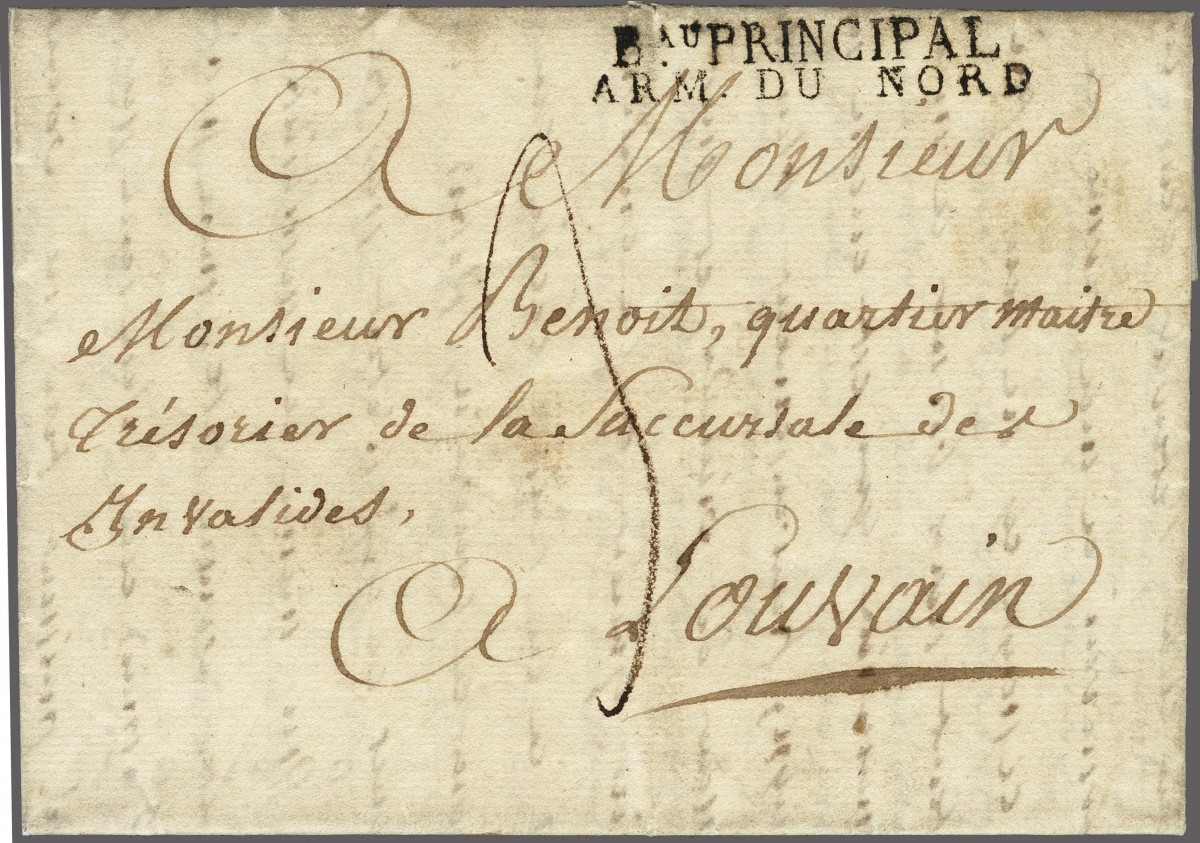 BAU PRINCIPAL
ARM. DU NORD
A Monsieur
Monsieur Benoit, quartier maitre
trésorier de la Succursale des
Invalides,
A Louvain